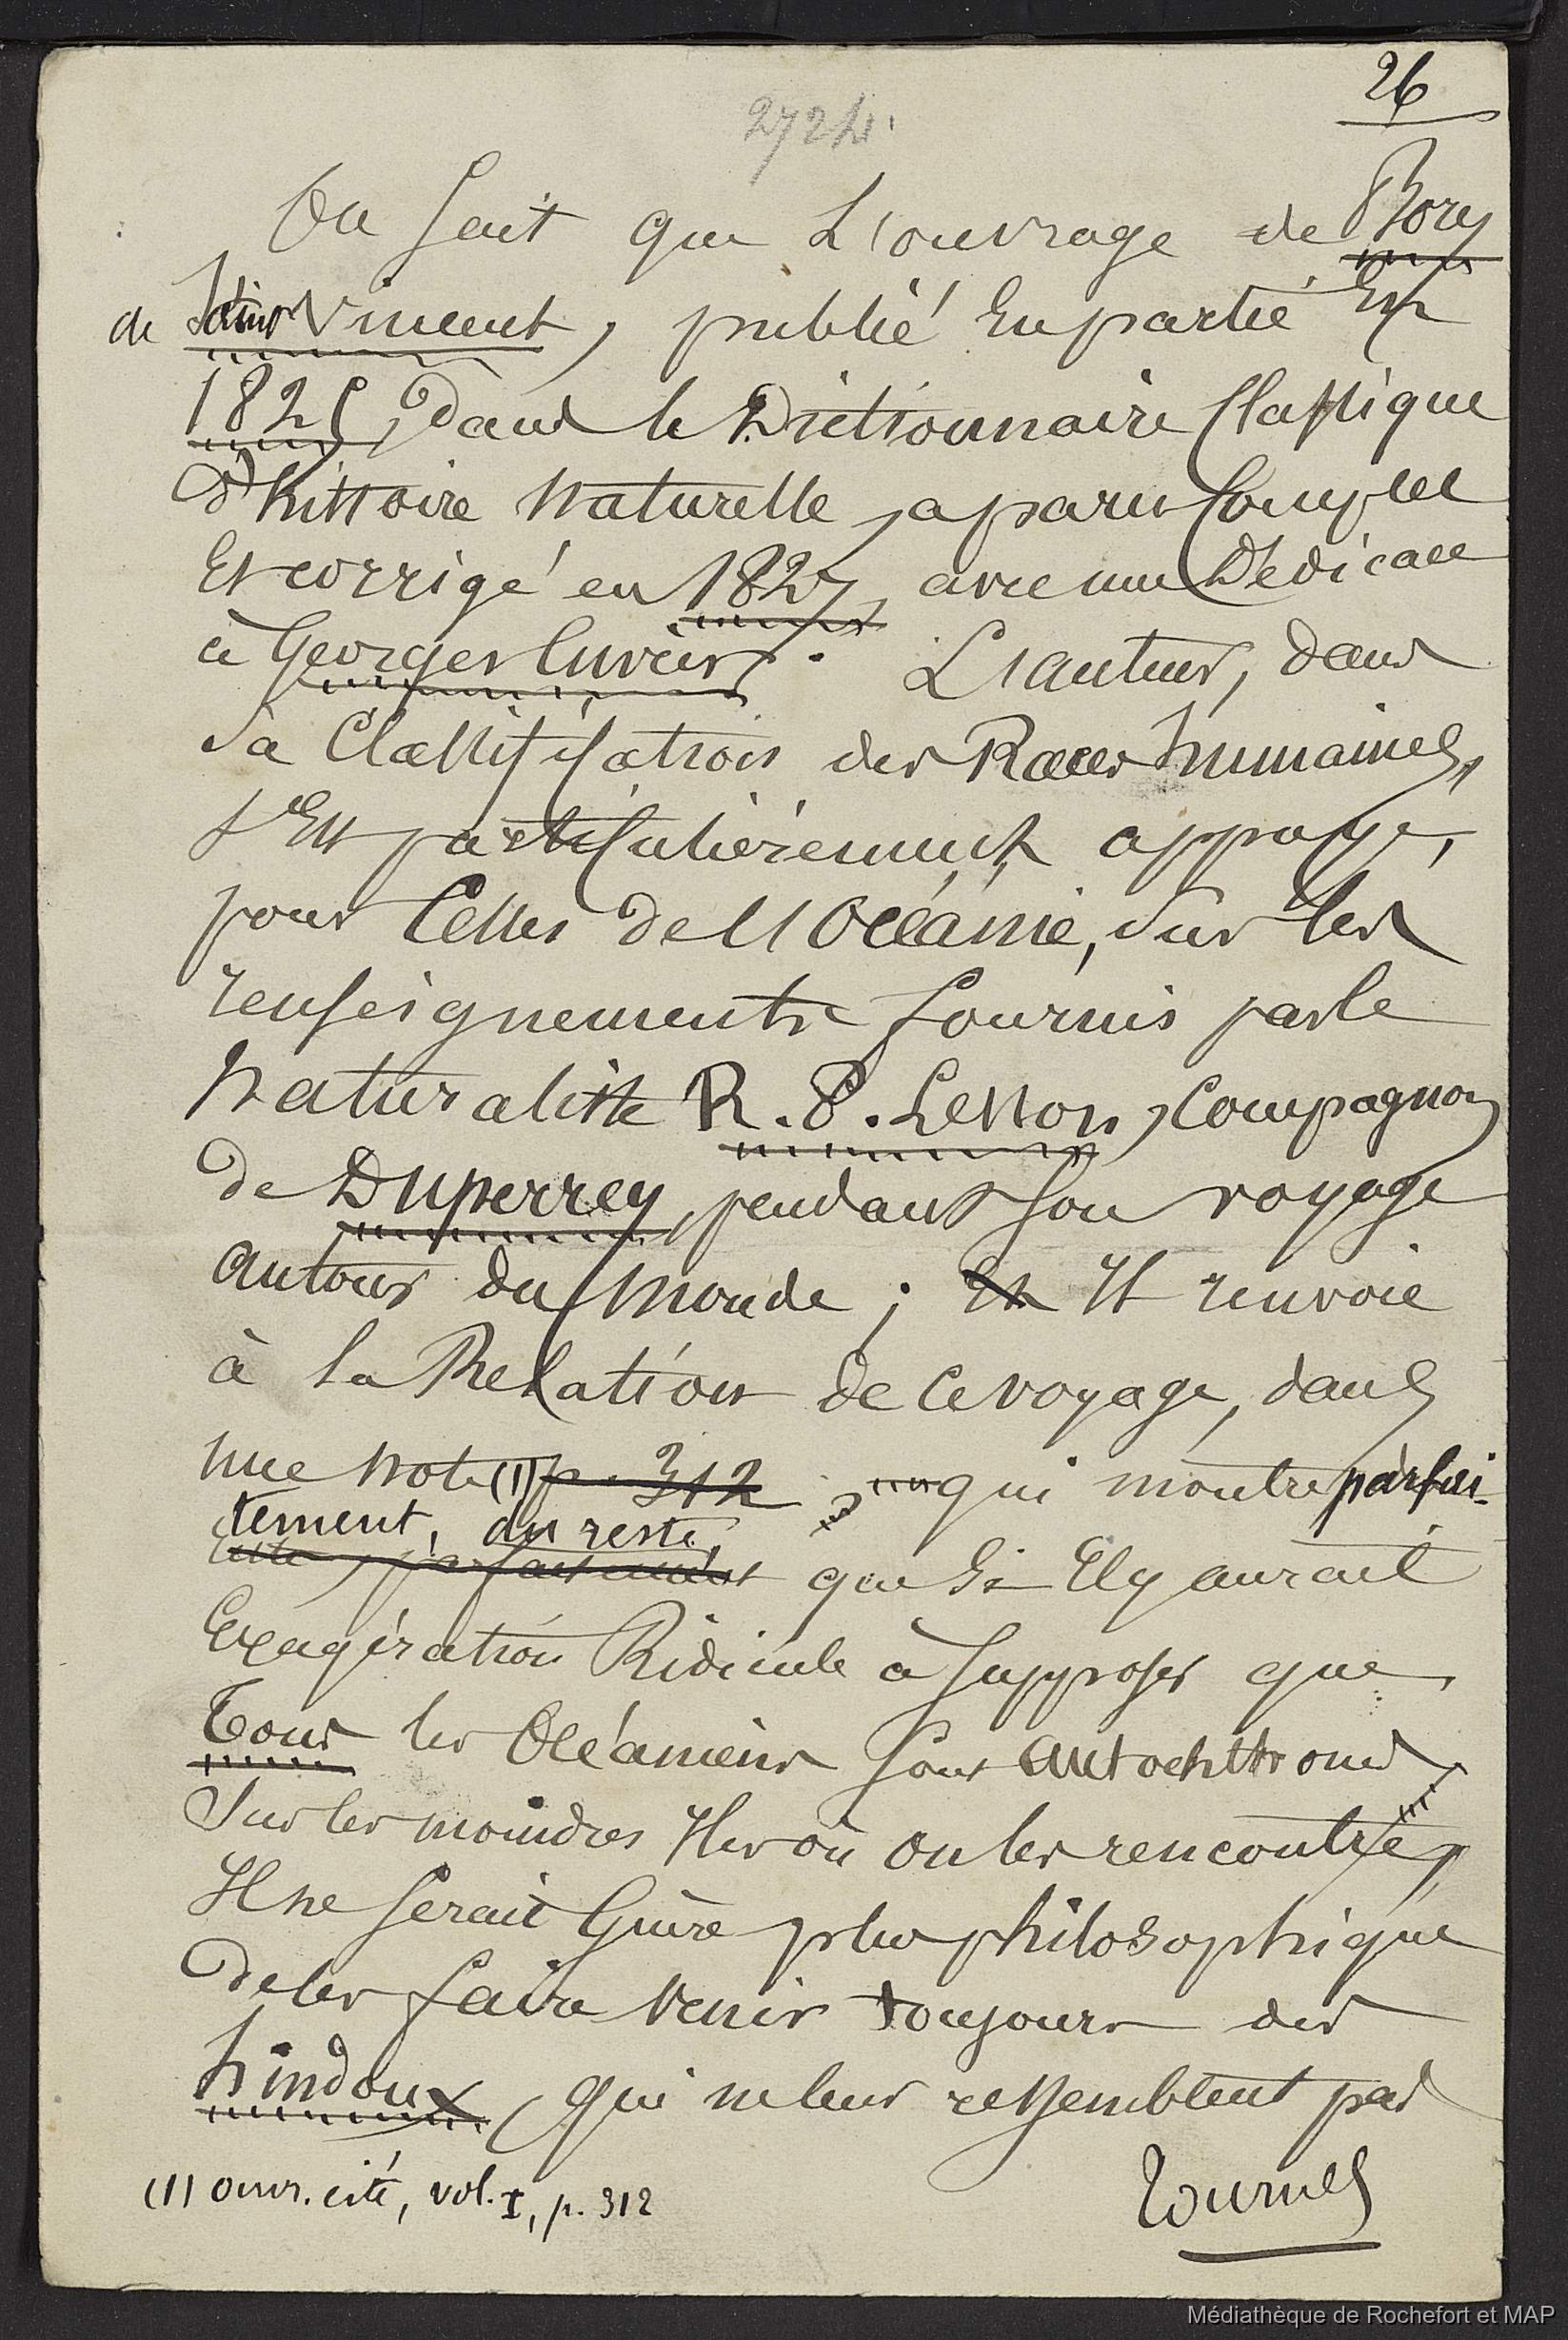 26
2724.
On sait que L'ouvrage de Bory
de Saint Vincent, publié En partie En
1825, Dans le Dictionnaire Classique
D'histoire Naturelle, a paru Complet
Et corrigé en 1827, avec une Dédicace
à Georges Cuvier. L'auteur, dans
Sa Classification des Races humaines,
s'Est particulièrement appuyé,
pour Celles de l'Océanie, Sur les
renseignements fournis par le
Naturaliste R. P. Lesson, Compagnon
de Duperrey, pendant son voyage
autour du Monde ; Et Il renvoie
à la Relation de Ce voyage, dans
une Note (1) p. 312, qui montre parfai-
tement, du reste,
que Si Il y aurait
Exagération Ridicule à supposer que
Tous les Océaniens sont autochthones
Sur les moindres Iles où on les rencontre,
Il ne serait Guère plus philosophique
De les faire venir toujours des
hindoux, qui ne leur ressemblent pas
(1) ouvr. cité, vol. I, p. 312
Tournez
Médiathèque de Rochefort et MAP